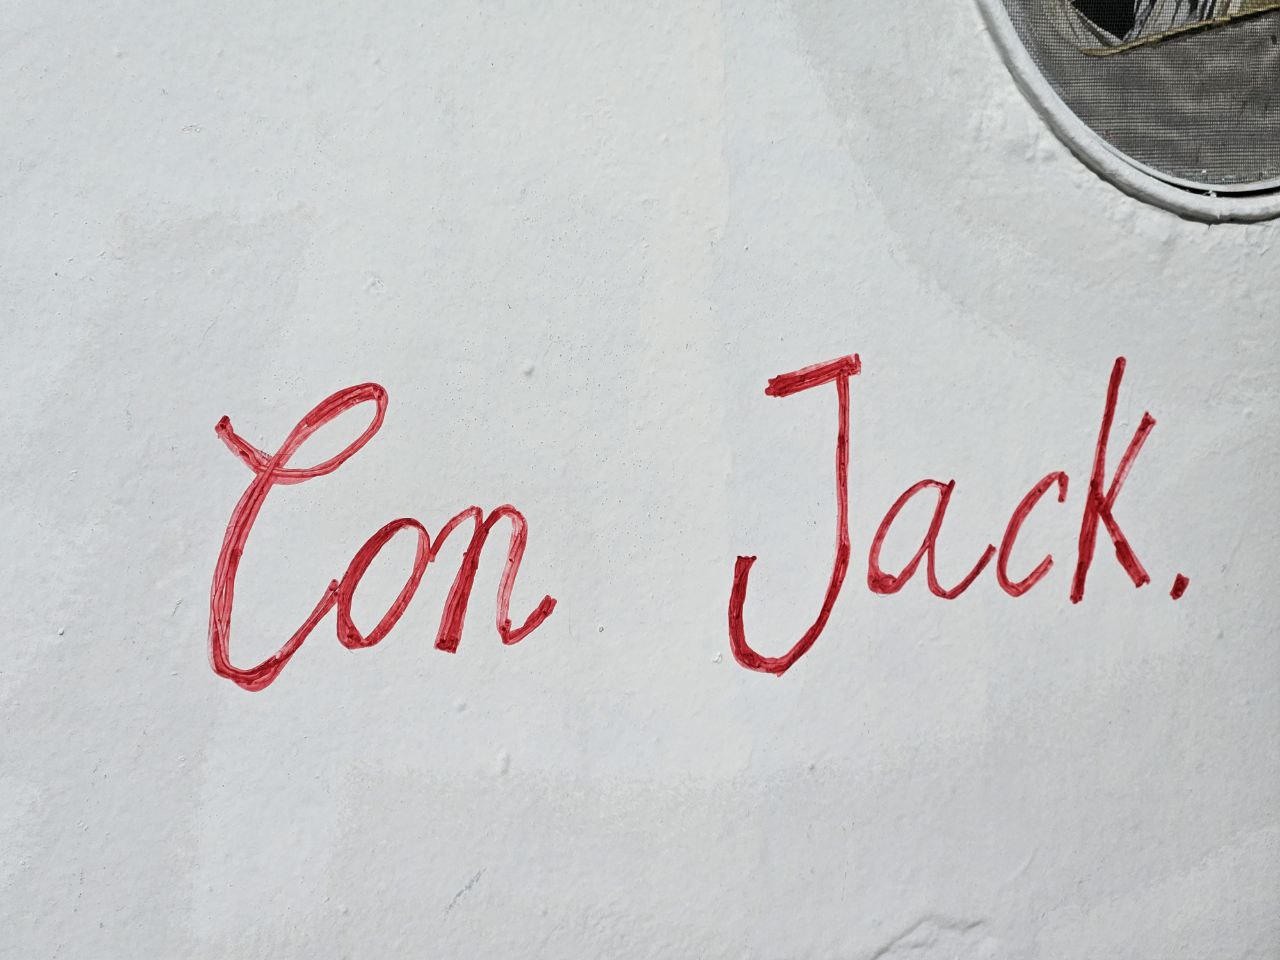 Con Jack.